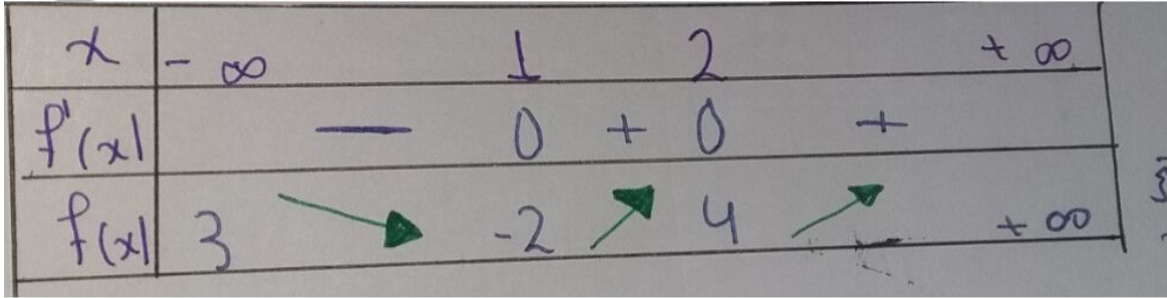 x -∞ 1 2 +∞
f'(x) — 0 + 0 +
f(x) 3 -2 4 +∞